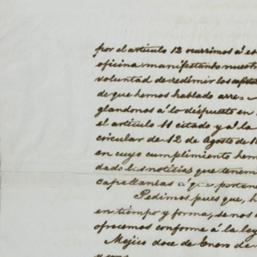 por el articulo 13 ocurrimos á es
oficina manifestando nuestr
voluntad de redimir los capita
de que hemos hablado arre-
glandonos á lo dispuesto en
el articulo 11 citado y á la
circular de 12 de Agosto de 18
en cuyo cumplimiento hem
dado las noticias que tenem
capellanías á que perten
Pedimos pues que, h
en tiempo y forma, se nos
ofrecemos conforme á la ley
Mejico doce de Enero de